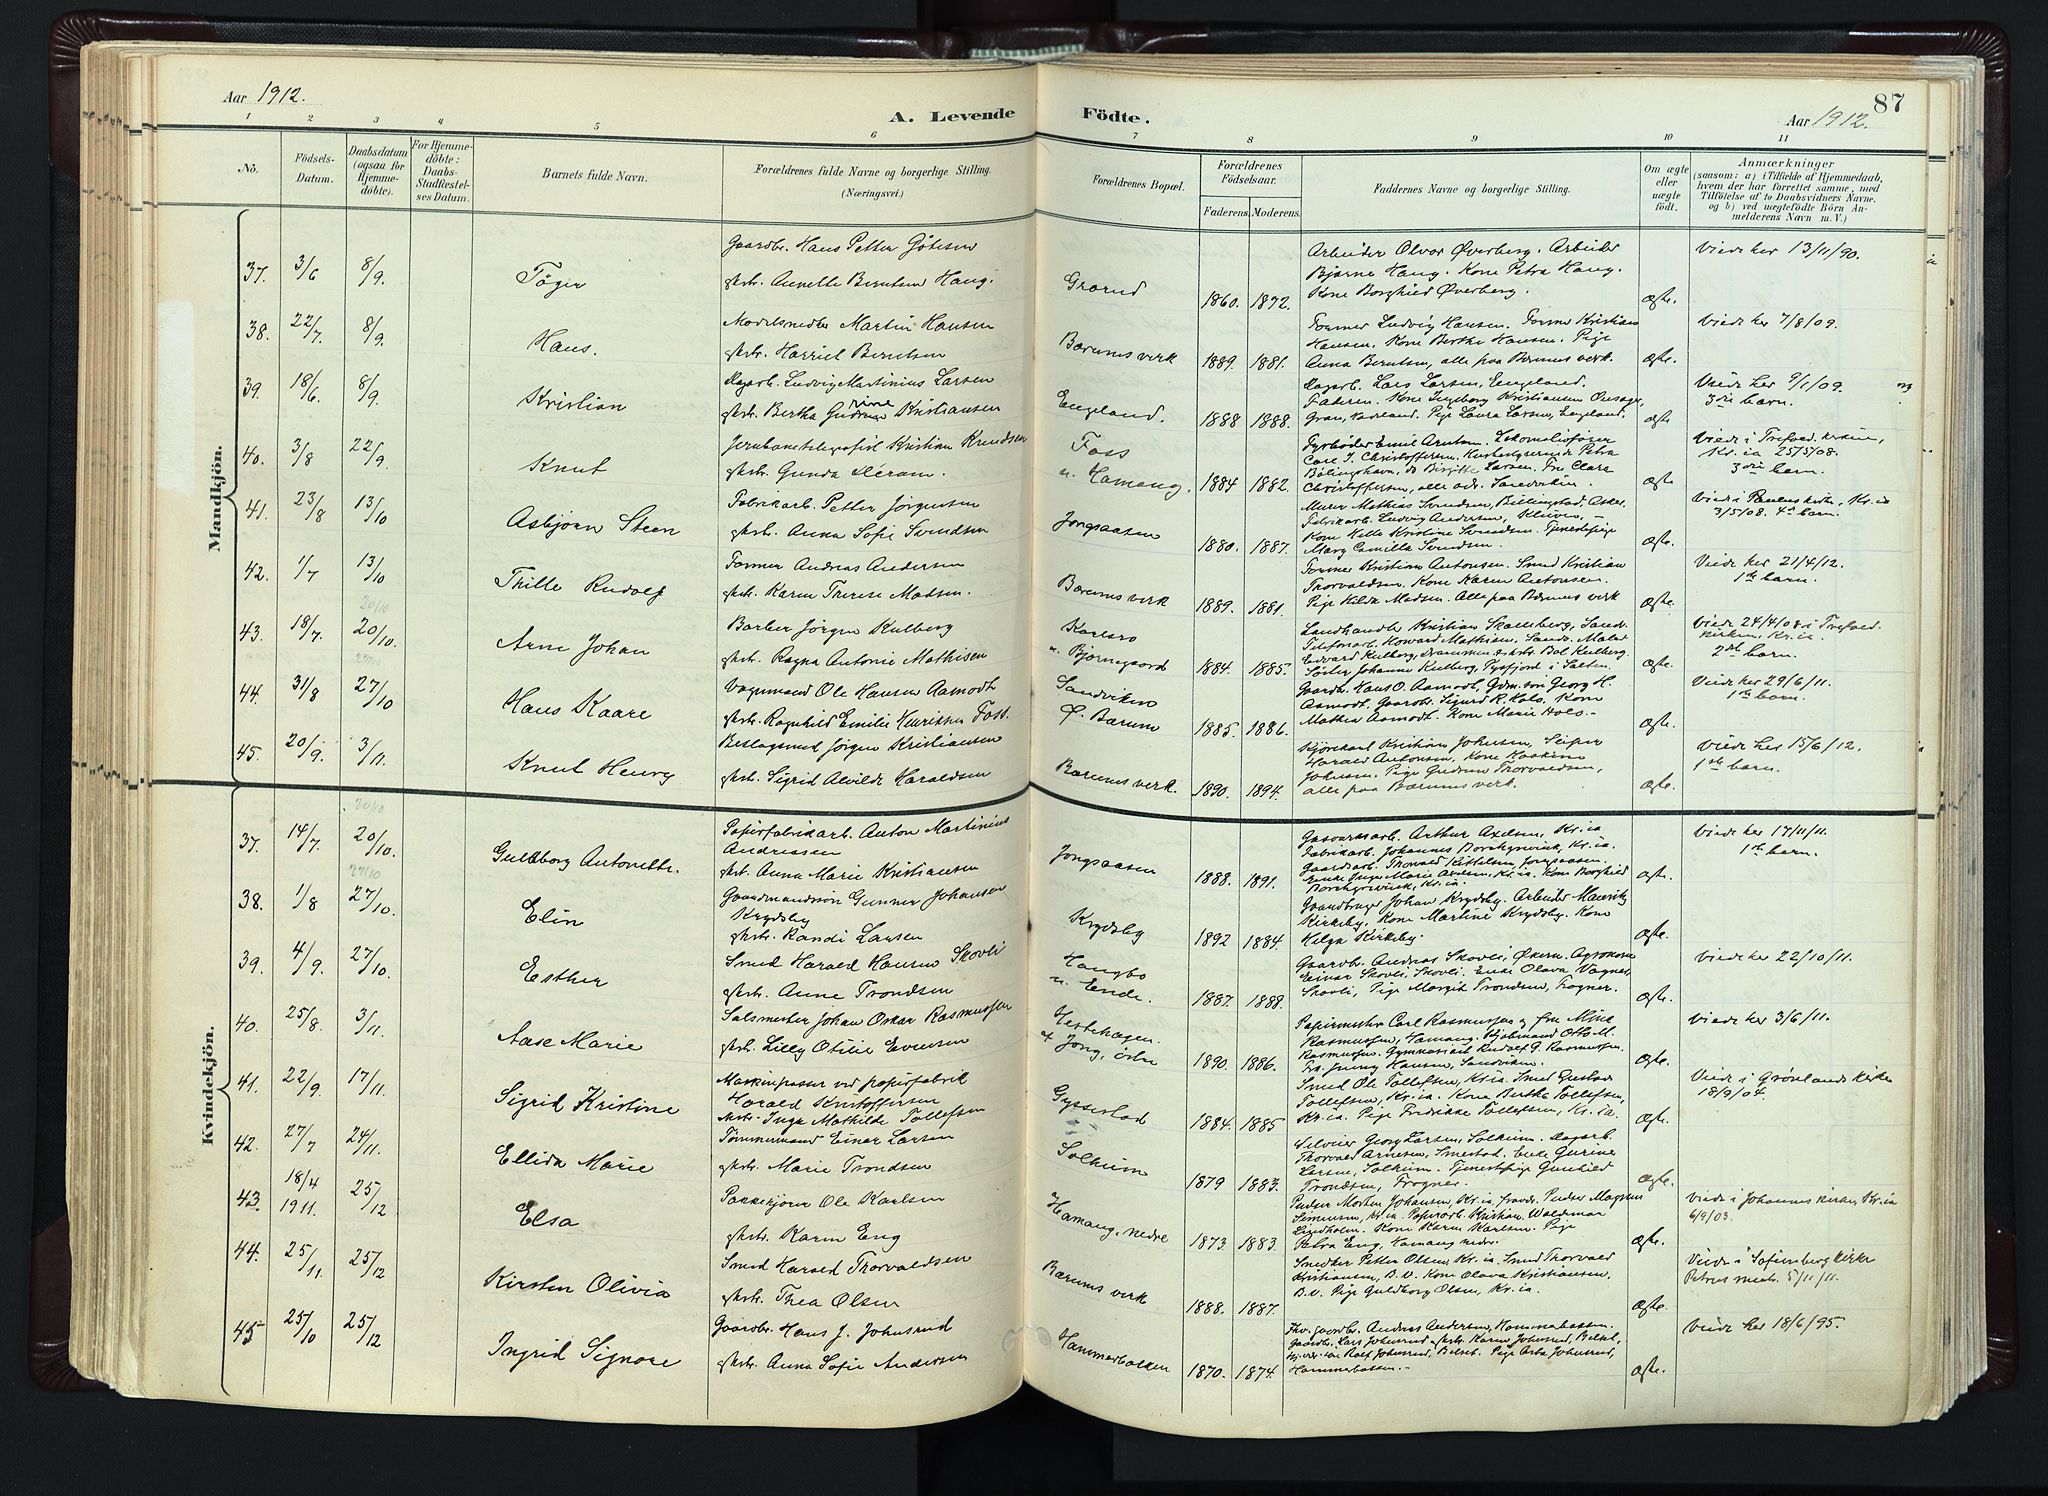 Aar 1912.
A. Levende Födte.
87
Aar 1912.
1 2 3 4 5 6 7 8 9 10 11
No.
Födsels-Datum.
Daabsdatum (ogsaa for Hjemmedöbte).
For Hjemmedöbte: Daabs-Stadfæstelses Datum.
Barnets fulde Navn.
Forældrenes fulde Navne og borgerlige Stilling. (Næringsvei.)
Forældrenes Bopæl.
Forældrenes Födselsaar.
Faderens. Moderens.
Faddernes Navne og borgerlige Stilling.
Om ægte eller uægte födt.
Anmærkninger
(saasom: a) i Tilfælde af Hjemmedaab,
hvem der har forrettet samme, med
Tilföielse af to Daabsvidners Navne.
og b) ved uægtefödte Börn Anmelderens Navn m. V.)
Mandkjön.
37. 3/6 8/9.
Gaardbr. Hans Petter
Hstr. Annette Berntsen Haug.
1860. 1872.
Arbeider Olvar Øverberg. Arbeider
Bjarne Haug. Kone Petra Haug.
Kone Borghild Øverberg.
ægte.
Viede her 13/11/90.
38. 22/7. 8/9. Hans.
Martin Hansen
Hstr. Harriet Berntsen
Bærums verk 1889. 1881.
Former Ludvig Hansen. Former Kristian
Hansen. Kone Berthe Hansen. Pige
Anna Berntsen, alle paa Bærums verk.
ægte.
Viede her 7/8/09.
39. 18/6. 8/9. Kristian
Dagarb. Ludvig Martinius Larsen
Hstr. Bertha Kristiansen
Engeland. 1888 1888.
Dagarb. Lars Larsen, Engeland.
Faderen. Kone Ingeborg Kristiansen
Pige Laura Larsen, Engeland.
ægte
Viede her 9/1/09.
3die barn.
40. 3/8 22/9. Knut
Jernbanetelegrafist Kristian Knudsen
Hstr. Gunda
Foss
n. Hamang. 1884 1882.
Fyrbøder Emil Arntsen. Lokomotivfører
Carl J. Christoffersen.
Birgitte Larsen. Fru Clara
Christoffersen, alle adr. Sandviken.
ægte
Viede i Trefold. kirken,
Kr.ia 25/5/08.
3die barn.
41. 23/8 13/10 Asbjørn Steen
Fabrikarb. Petter Jørgensen
Hstr. Anna Sofie Svendsen
Jongsaasen 1880. 1887.
Murer Mathias Svendsen, Billingstad, Asker.
Fabrikarb. Ludvig Andersen,
Kone Helle Kristine Svendsen. Tjenestepige
Mary Camilla Svendsen.
ægte.
Viede i Paulus kirke, Kr.ia
3/5/08. 4de barn.
42. 1/7 13/10 Thille Rudolf
Former Andreas Andersen
Hstr. Karen Therese Madsen.
Bærums verk 1889. 1881.
Former Kristian Antonsen. Smed Kristian
Thorvaldsen. Kone Karen Antonsen.
Pige Hilda Madsen. Alle paa Bærums verk
ægte.
Viede her 21/4/12.
1ste barn.
20/10
43. 18/7. 20/10. Arne Johan
Barber Jørgen Kulberg
Hstr. Ragna Antonie Mathisen
n. Bjørnegaard 1884. 1885.
Landhandler Kristian Skalleberg, Sandv.
Telefonarb. Howard Mathisen, Sandv. Maler
Edvard Kulberg, Drammen.
Johanne Kulberg,
ægte
Viede 24/4/08 i Trefold.
kirken, Kr.ia.
2det barn.
27/10
44. 31/8 27/10 Hans Kaare
Vognmand Ole Hansen Aamodt
Hstr. Ragnhild Emilie Henriksen Foss.
Sandviken
Ø. Bærum 1885. 1886.
Gaardbr. Hans O. Aamodt, Gdm.søn Georg H.
Aamodt. Gaardbr. Sigurd R. Holo. Kone
Mathea Aamodt. Kone Marie Holo.
ægte.
Viede her 29/6/11.
1ste barn.
45. 20/9. 3/11. Knut Henry
Beslagsmed Jørgen Kristiansen
Hstr. Sigrid Alvilde Haraldsen
Bærums verk. 1890. 1894.
Kjørekarl Kristian Johnsen,
Harald Antonsen, Kone
Johnsen. Pige Gudrun Thorvaldsen,
alle paa Bærums verk.
ægte.
Viede her 15/6/12.
1ste barn.
Kvindekjön.
20/10
37. 14/7. 20/10. Guldborg Antonette.
Papirfabrikarb. Anton Martinius
Andreassen
Hstr. Anna Marie Kristiansen
Jongsaasen 1888. 1891.
Gasverksarb. Arthur Axelsen, Kr.ia
Fabrikarb. Johannes Borchgrevink, Kr.ia.
Gaardarb. Thorvald Kittelsen, Jongsaasen.
Enke Inga Marie Axelsen, Kr.ia. Kone Borghild
Borchgrevink, Kr.ia.
ægte.
Viede her 17/11/11.
1ste barn.
27/10
38. 1/8 27/10. Elin
Gaardmandssøn Gunner Johansen
Krydsby
Hstr. Randi Larsen
Krydsby 1892 1884.
Gaardbruger Johan Krydsby. Arbeider
Kirkeby. Kone Martine Krydsby. Kone
Helga Kirkeby.
ægte.
39. 4/9. 27/10. Esther
Smed Harald Hansen Skovli
Hstr. Anne Trondsen
Haugbo
n. Ende. 1887. 1888.
Gaardb. Andreas Skovli, Økern. Agronom
Einar Skovli, Skovli. Enke Olava
Skovli, Pige Margit Trondsen, Frogner.
ægte.
Viede her 22/10/11.
40. 25/8. 3/11. Aase Marie
Salsmester Johan Oskar Rasmussen
Hstr. Lilly Otilie Evensen
Hestehagen
af Jong, østre 1890. 1886.
Papirmester Carl Rasmussen og fru Mina
Rasmussen, Hamang. Otto M.
Rasmussen. Gymnasiast Rudolf G. Rasmussen.
Frk. Jenny Hansen, Sandviken.
ægte.
Viede her 3/6/11.
41. 22/9. 17/11. Sigrid Kristine
Maskinpasser ved papirfabrik
Harald Kristoffersen
Hstr. Inga Mathilde Tollefsen
Gyssestad 1884. 1885
Smed Ole Tollefsen, Kr.ia. Smed Gustav
Tollefsen, Kr.ia. Kone Berthe Tollefsen,
Kr.ia. Pige Fredrikke Tollefsen, Kr.ia.
ægte.
Viede i Grønlands kirke
18/9/04
42. 27/7 24/11. Ellida Marie
Tømmermand Einar Larsen
Hstr. Marie Trondsen
Solheim 1879 1883.
Georg Larsen, Solheim. Dagarb.
Thorvald Arnesen, Smestad. Enke Gurine
Larsen, Solheim. Tjenestepige Gunhild
Trondsen, Frogner.
ægte.
43. 18/4 1911. 25/12 Elsa
Pakkekjører Ole Karlsen
Hstr. Karen Eng
Hamang, nedre 1873. 1883.
Pudser Morten Johansen, Kr.ia, fraværd. Pudser Magnus
Simensen, Kr.ia. Papirarb. Kristian Waldemar
Lindholm. Kone Karen Karlsen. Pige
Petra Eng, Hamang nedre.
ægte.
Viede i Johannes kirke, Kr.ia
6/9/03.
44. 25/11. 25/12 Kirsten Olivia
Smed Harald Thorvaldsen
Hstr. Thea Olsen
Bærums verk 1888. 1887.
Smed Thorvald
Kristiansen, B.V. Kone Olava Kristiansen,
B.V. Pige Guldborg Olsen, Kr.ia.
ægte.
Viede i Sofienberg kirke
Petrus menh. 5/11/11.
45 25/10 25/12 Ingrid Signore
Gaardbr. Hans J. Johnsrud
Hstr. Anna Sofie Andersen
Hammerbakken 1870. 1874.
Fhv. gaardbr. Andreas Andersen, Hammerbakken.
Gaardbr. Lars Johnsrud og Hstr. Karen Johnsrud, Belset,
Rolf Johnsrud, Belset. Pige Asta Johnsrud,
Hammerbakken.
ægte.
Viede her 18/6/95.